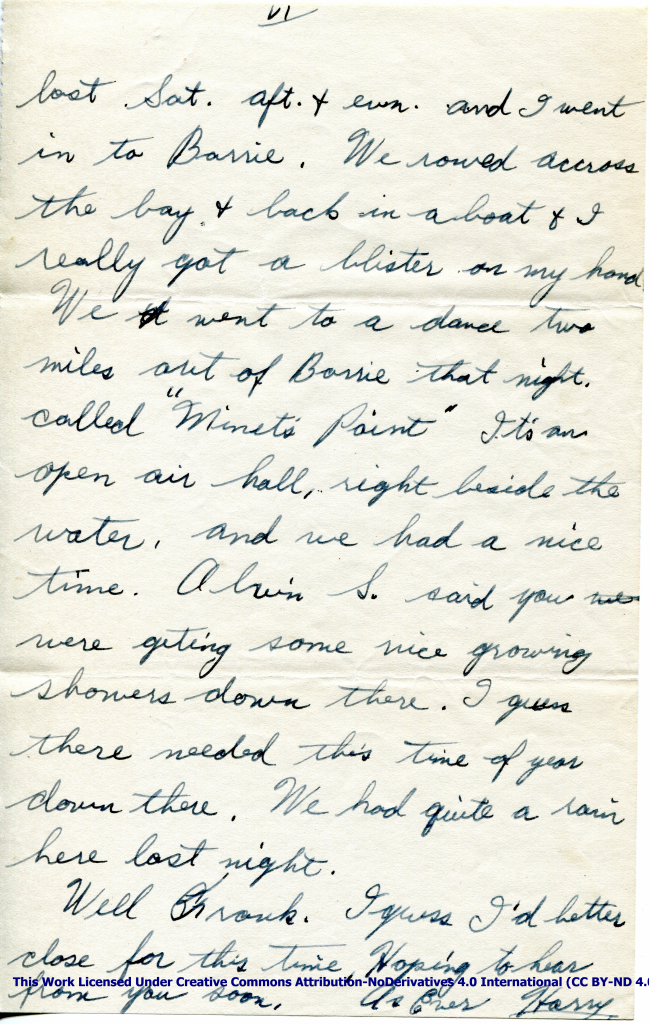 VI
last Sat. aft. & evn. and I went
in to Barrie. We rowed accross
the bay & back in a boat & I
really got a blister on my hand
We went to a dance two
miles out of Barrie that night.
called "Minet's Point" It's an
open air hall, right beside the
water, and we had a nice
time. Alvin S. said you we
were geting some nice growing
showers down there. I guess
there needed this time of year
down there. We had quite a rain
here last night.
Well Frank. I guess I'd better
close for this time, Hoping to hear
This Work Licensed Under Creative Commons Attribution-NoDerivatives 4.0 International (CC BY-ND 4.0
from you soon, As Ever Harry